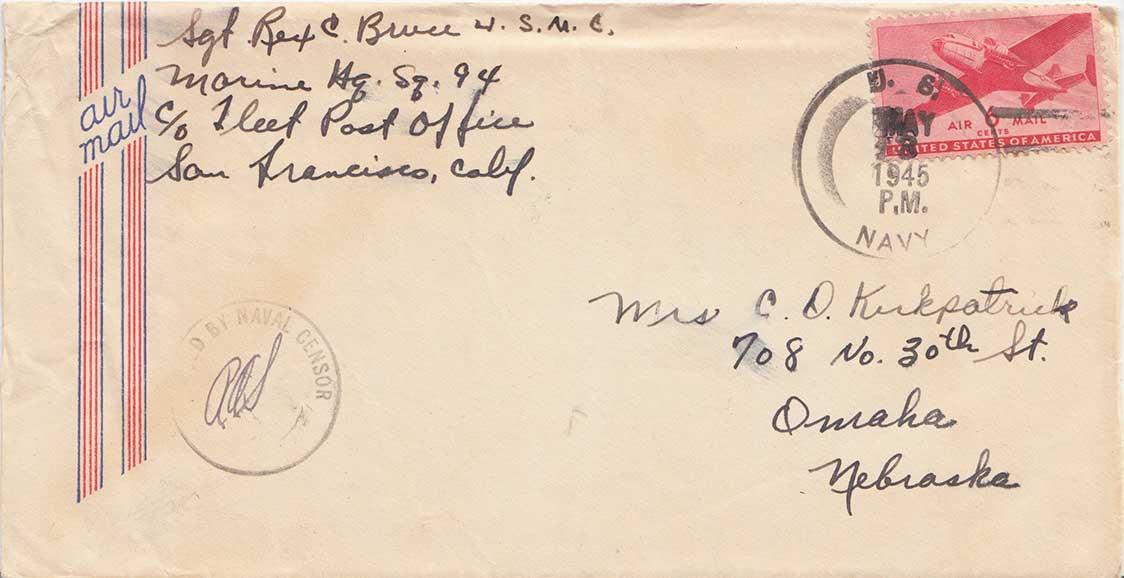 Sgt. Rex C. Bruce U.S.M.C.
Marine Hq. Sq. 94
c/o Fleet Post Office
San Francisco, Calif.
air
mail
U. S.
MAY
8
1945
P.M.
NAVY
AIR 6 MAIL
CENTS
UNITED STATES OF AMERICA
D BY NAVAL CENSOR
Mrs C. D. Kirkpatrick
708 No. 30th St.
Omaha
Nebraska